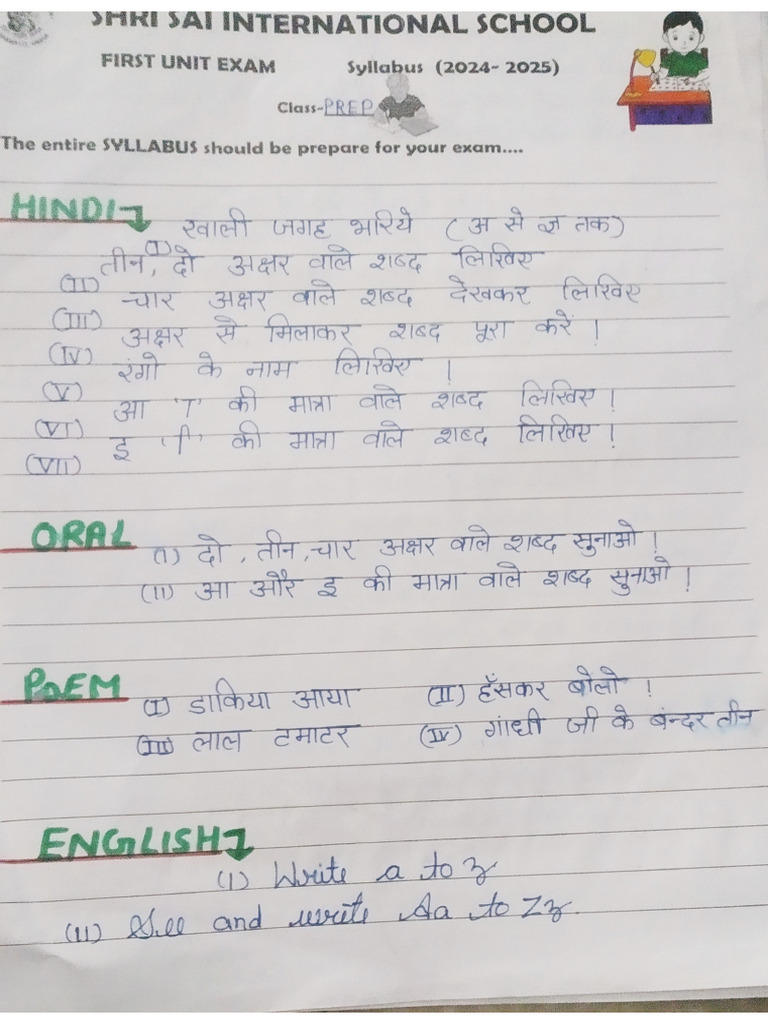 SHRI SAI INTERNATIONAL SCHOOL
FIRST UNIT EXAM Syllabus (2024- 2025)
Class-PREP
The entire SYLLABUS should be prepare for your exam....
HINDI
(I) खाली जगह भरिये (अ से ज्ञ तक)
(II) तीन, दो अक्षर वाले शब्द लिखिए
(III) चार अक्षर वाले शब्द देखकर लिखिए
(IV) अक्षर से मिलाकर शब्द पूरा करें |
(V) रंगो के नाम लिखिए |
(VI) आ 'ा' की मात्रा वाले शब्द लिखिए |
(VII) इ 'ि' की मात्रा वाले शब्द लिखिए |
ORAL (I) दो, तीन, चार अक्षर वाले शब्द सुनाओ |
(II) आ और इ की मात्रा वाले शब्द सुनाओ |
POEM (I) डाकिया आया (II) हँसकर बोलो !
(III) लाल टमाटर (IV) गांधी जी के बन्दर तीन
ENGLISH
(I) Write a to z
(II) See and write Aa to Zz.